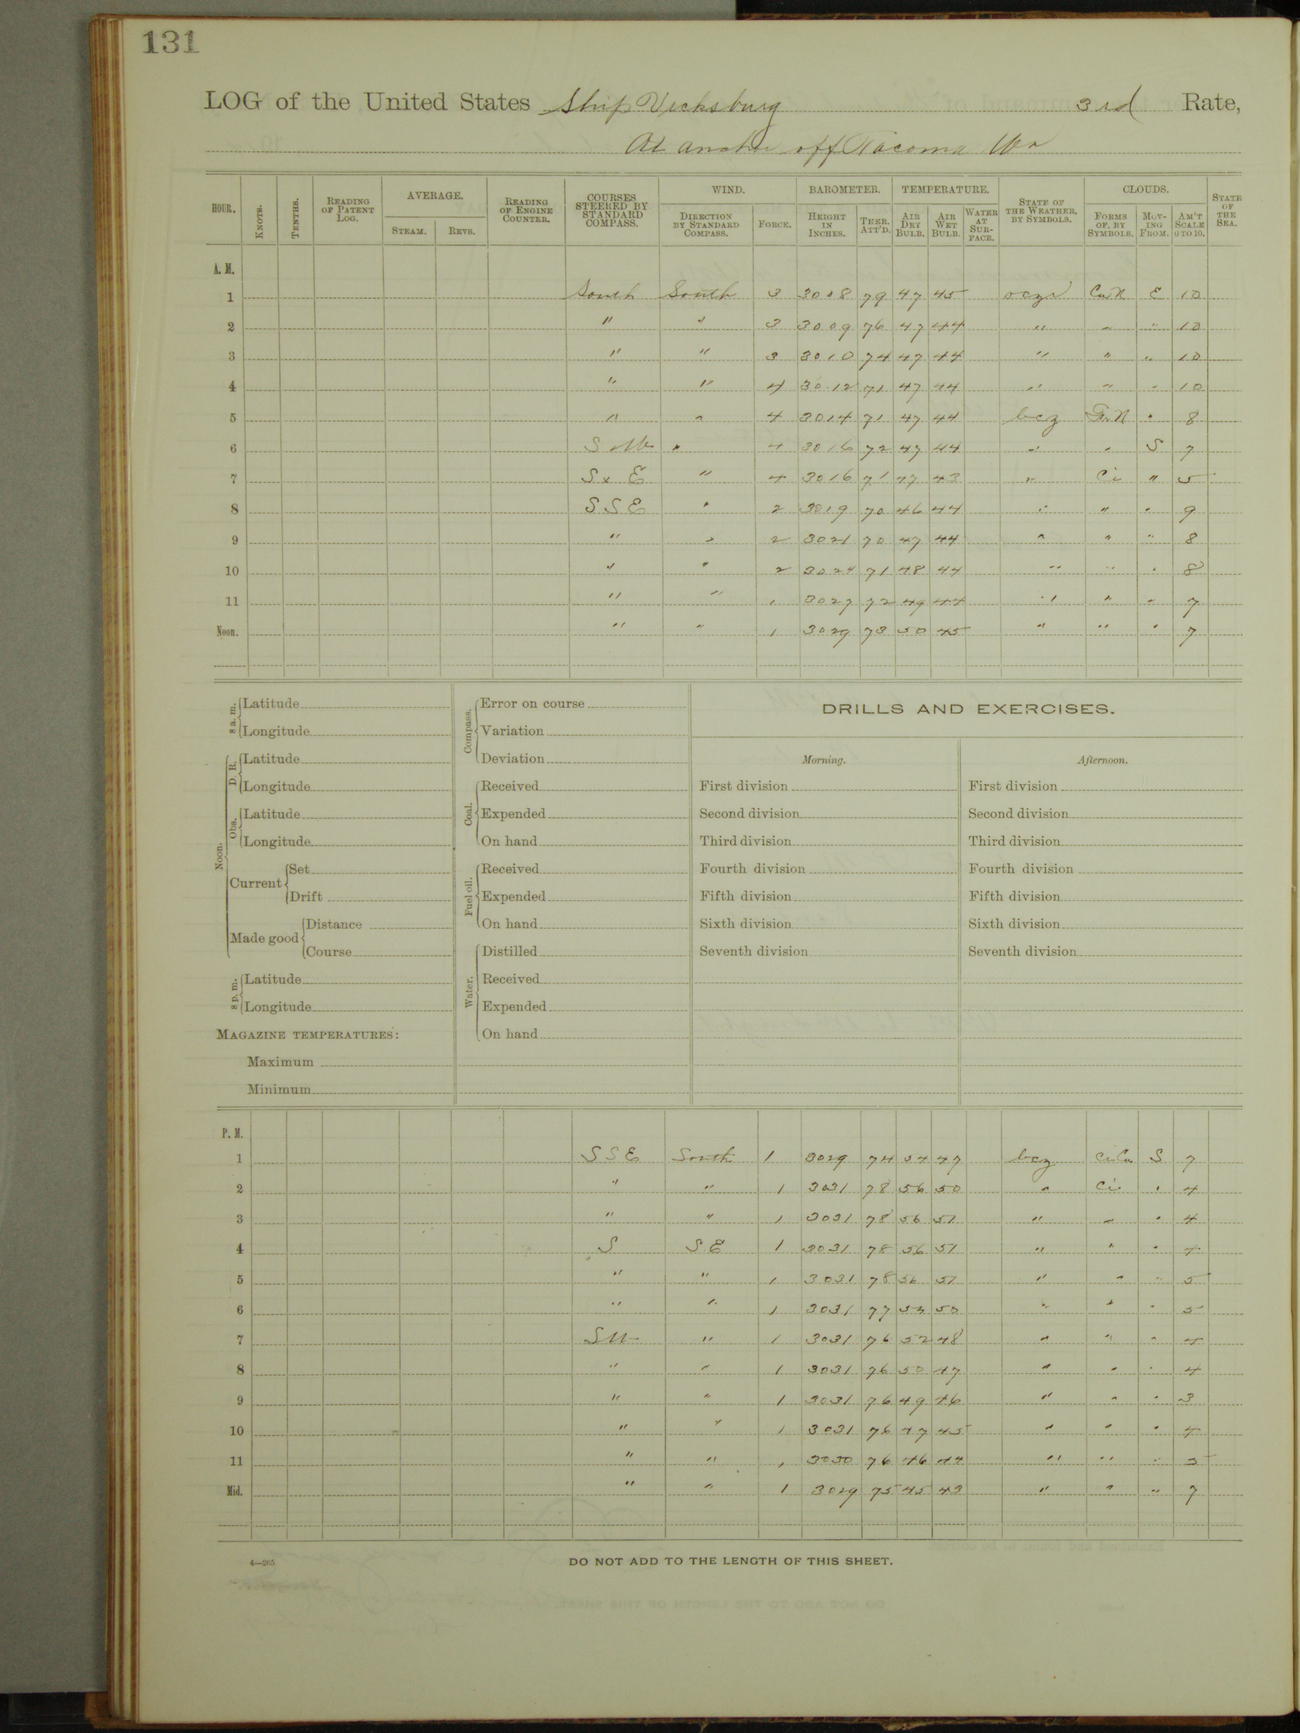 131
LOG of the United States Ship Vicksburg 3rd Rate,
At anchor off Tacoma Wn
HOUR. KNOTS. TENTHS. READING OF PATENT LOG. AVERAGE. STEAM. REVS. READING OF ENGINE COUNTER. COURSES STEERED BY STANDARD COMPASS. WIND. DIRECTION BY STANDARD COMPASS. FORCE. BAROMETER. HEIGHT IN INCHES. THER. ATT'D. TEMPERATURE. AIR DRY BULB. AIR WET BULB. WATER AT SURFACE. STATE OF THE WEATHER, BY SYMBOLS. CLOUDS. FORMS OF, BY SYMBOLS. MOVING FROM. AM'T SCALE 0 TO 10. STATE OF THE SEA.
A. M.
1 South South 3 3008 79 47 45 CuN E 10
2 " " 3 3009 76 47 44 " " " 10
3 " " 3 3010 74 47 44 " " " 10
4 " " 4 3012 71 47 44 " " " 10
5 " " 4 3014 71 47 44 bcz " 8
6 " 4 3016 72 47 44 " " S 7
7 SxE " 4 3016 71 47 43 " Ci " 5
8 SSE " 2 3019 70 46 44 " " " 9
9 " " 2 3021 70 47 44 " " " 8
10 " " 2 3024 71 48 44 " " " 8
11 " " 1 3027 72 49 44 " " " 7
Noon. " " 1 3029 73 50 45 " " " 7
8 a. m. Latitude
Longitude
Noon. D. R. Latitude
Longitude
Obs. Latitude
Longitude
Current Set
Drift
Made good Distance
Course
8 p. m. Latitude
Longitude
MAGAZINE TEMPERATURES:
Maximum
Minimum
Compass. Error on course
Variation
Deviation
Coal. Received
Expended
On hand
Fuel oil. Received
Expended
On hand
Water. Distilled
Received
Expended
On hand
DRILLS AND EXERCISES.
Morning.
First division
Second division
Third division
Fourth division
Fifth division
Sixth division
Seventh division
Afternoon.
First division
Second division
Third division
Fourth division
Fifth division
Sixth division
Seventh division
P. M.
1 SSE South 1 3029 74 54 47 bcz CiCu S 7
2 " " 1 3031 78 56 50 " Ci " 4
3 " " 1 3031 78 56 51 " " " 4
4 S SE 1 3031 78 56 51 " " " 4
5 " " 1 3031 78 56 51 " " " 5
6 " " 1 3031 77 53 50 " " " 5
7 SW " 1 3031 76 52 48 " " " 4
8 " " 1 3031 76 50 47 " " " 4
9 " " 1 3031 76 49 46 " " " 3
10 " " 1 3031 76 47 45 " " " 4
11 " " 1 3030 76 46 44 " " " 5
Mid. " " 1 3029 75 45 43 " " " 7
4—265
DO NOT ADD TO THE LENGTH OF THIS SHEET.